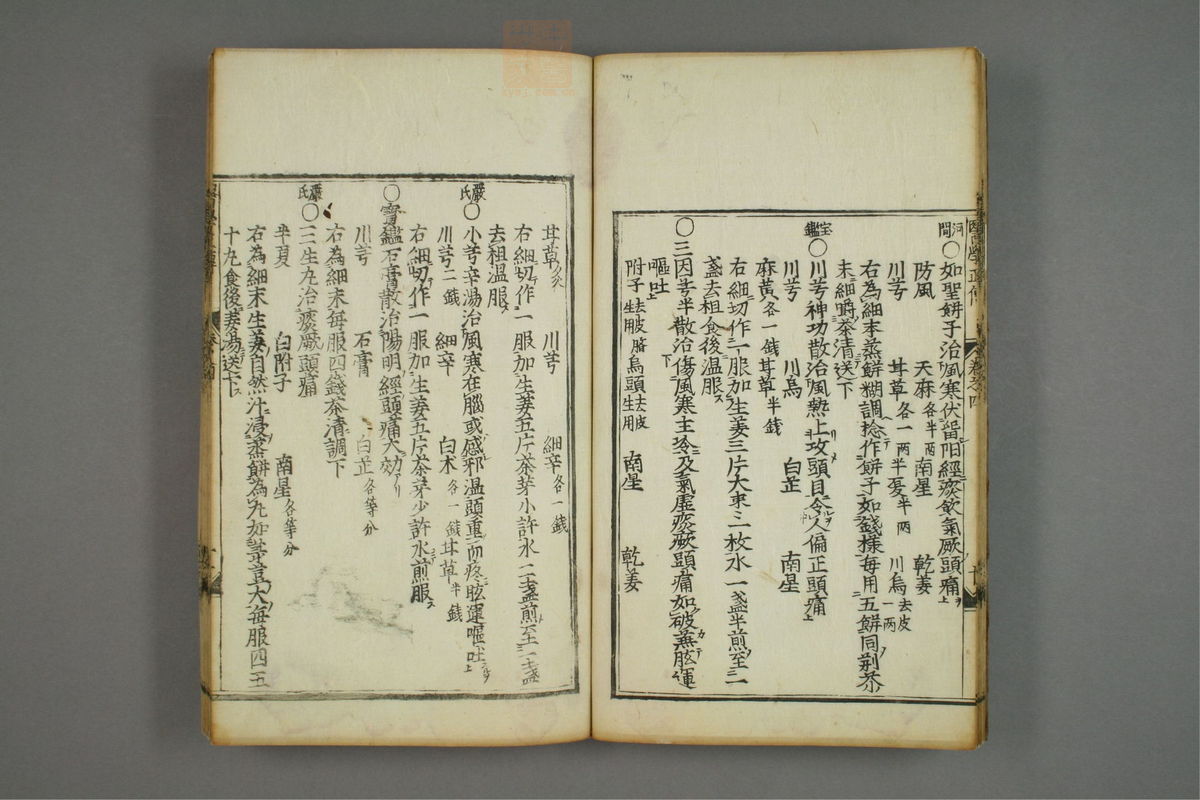 河間
○如聖餅子治風寒伏留陽經痰飲氣厥頭痛
防風 天麻各半兩 南星 乾姜
川芎 甘草各一兩 半夏半兩 川烏去皮一兩
右為細末蒸餅糊調捻作餅子如錢樣每用五餅同荆芥
末細嚼茶清送下
宝鑑
○川芎神功散治風熱上攻頭目令人偏正頭痛
川芎 川烏 白芷 南星
麻黄各一錢 甘草半錢
右細切作一服加生姜三片大枣二枚水一盞半煎至一
盞去柤食後温服
○三因芎辛散治傷風寒主冷及氣虛痰厥頭痛如破兼眩運
嘔吐
附子生用去皮臍 烏頭生用去皮 南星 乾姜
甘草炙 川芎 細辛各一錢
右細切作一服加生姜五片茶芽小許水二盞煎至一盞
去柤温服
嚴氏
○小芎辛湯治風寒在腦或感邪温頭重而疼眩運嘔吐
川芎二錢 細辛 白术各一錢 甘草半錢
右細切作一服加生姜五片茶芽少許水煎服
○寶鑑石膏散治陽明經頭痛大効
川芎 石膏 白芷各等分
右為細末每服四錢茶清調下
嚴氏
○三生丸治痰厥頭痛
半夏 白附子 南星各等分
右為細末生姜自然汁浸蒸餅為丸如菉豆大每服四五
十丸食後姜湯送下